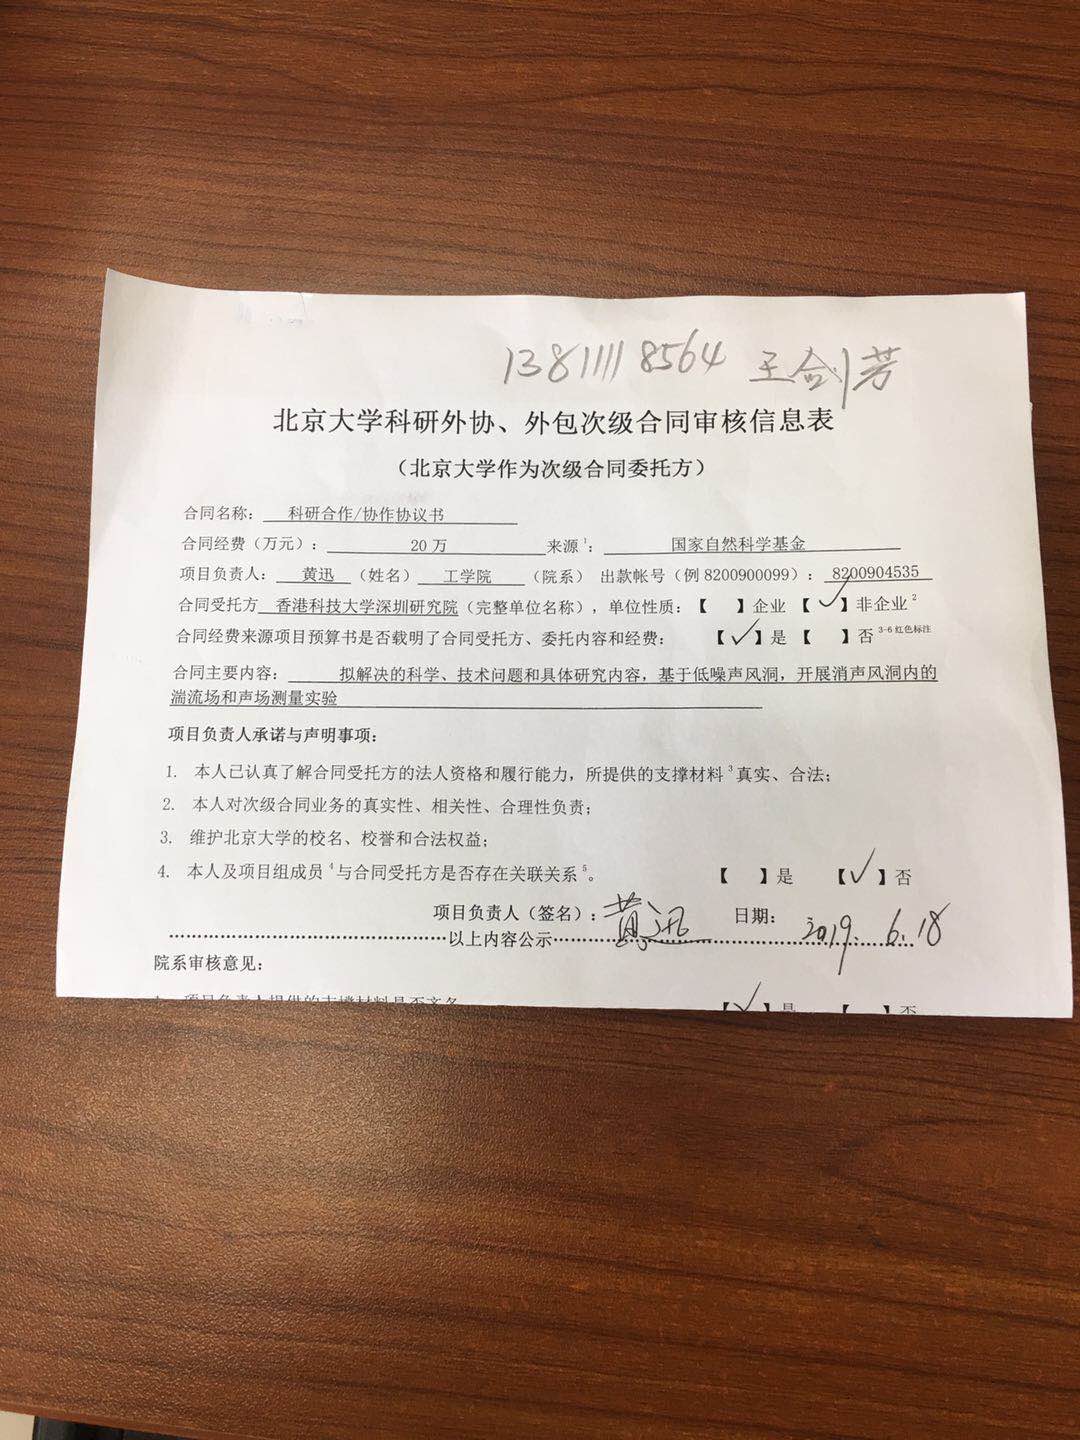 13811118564 王剑芳
北京大学科研外协、外包次级合同审核信息表
（北京大学作为次级合同委托方）
合同名称： 科研合作/协作协议书
合同经费（万元）： 20 万 来源1： 国家自然科学基金
项目负责人： 黄迅 （姓名） 工学院 （院系） 出款帐号（例 8200900099）： 8200904535
合同受托方 香港科技大学深圳研究院（完整单位名称），单位性质：【 】企业 【✓】非企业2
合同经费来源项目预算书是否载明了合同受托方、委托内容和经费： 【✓】是 【 】否 3-6 红色标注
合同主要内容： 拟解决的科学、技术问题和具体研究内容，基于低噪声风洞，开展消声风洞内的
湍流场和声场测量实验
项目负责人承诺与声明事项：
1. 本人已认真了解合同受托方的法人资格和履行能力，所提供的支撑材料3真实、合法；
2. 本人对次级合同业务的真实性、相关性、合理性负责；
3. 维护北京大学的校名、校誉和合法权益；
4. 本人及项目组成员4与合同受托方是否存在关联关系5。 【 】是 【✓】否
项目负责人（签名）：黄迅 日期： 2019.6.18
以上内容公示
院系审核意见：
1. 项目负责人提供的支撑材料是否齐备 【✓】是 【 】否